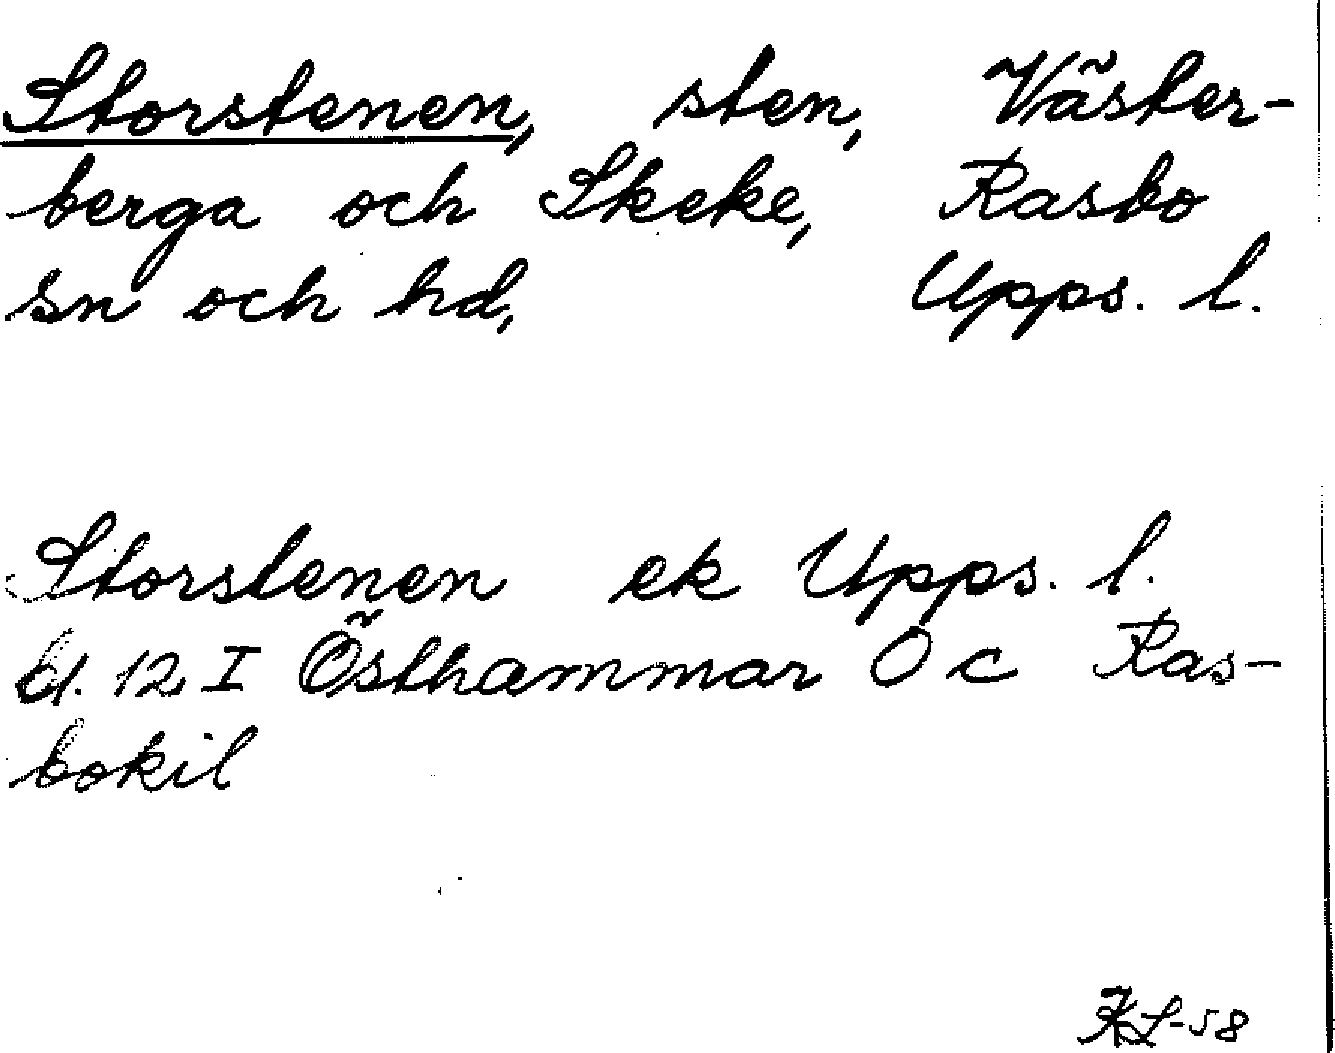 Storstenen, sten, Väster-
berga och Skeke, Rasbo
sn och hd, Upps. l.
Storstenen ek Upps. l.
bl. 12 I Östhammar Ö c Ras-
bokil
KL-58